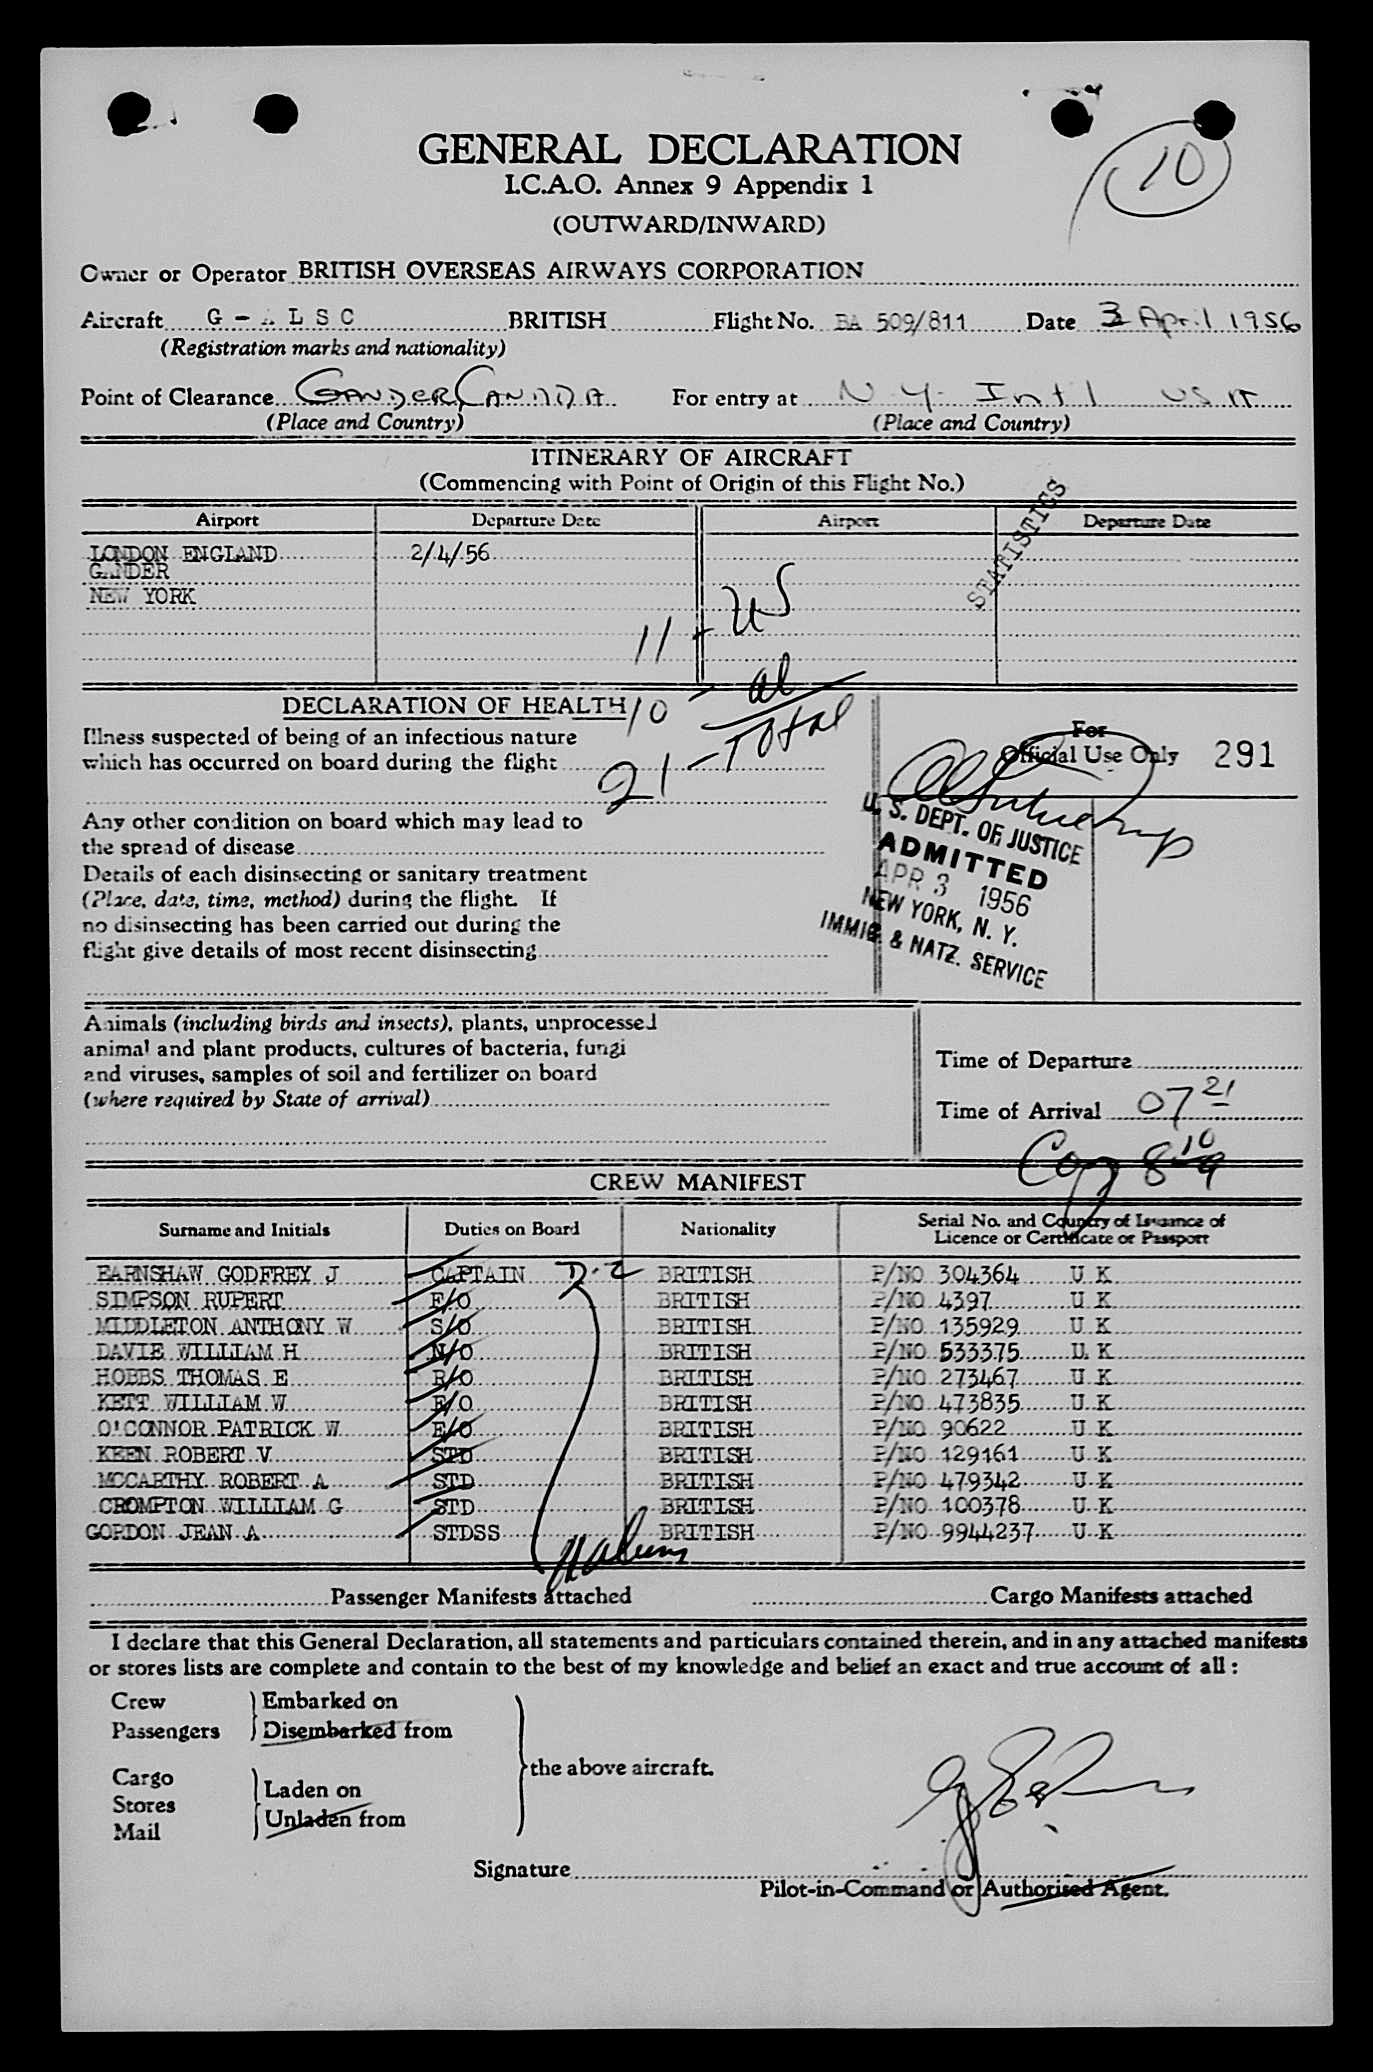 10
GENERAL DECLARATION
I.C.A.O. Annex 9 Appendix 1
(OUTWARD/INWARD)
Owner or Operator BRITISH OVERSEAS AIRWAYS CORPORATION
Aircraft G - A L S C BRITISH Flight No. BA 509/811 Date 3 April 1956
(Registration marks and nationality)
Point of Clearance GANDER CANADA For entry at N.Y. Int'l USA
(Place and Country) (Place and Country)
ITINERARY OF AIRCRAFT
(Commencing with Point of Origin of this Flight No.)
STATISTICS
Airport Departure Date Airport Departure Date
LONDON ENGLAND 2/4/56
GANDER
NEW YORK
11 - US
10 - al
21 - Total
DECLARATION OF HEALTH
Illness suspected of being of an infectious nature
which has occurred on board during the flight
Any other condition on board which may lead to
the spread of disease
Details of each disinsecting or sanitary treatment
(Place, date, time, method) during the flight. If
no disinsecting has been carried out during the
flight give details of most recent disinsecting
For
Official Use Only 291
U. S. DEPT. OF JUSTICE
ADMITTED
APR 3 1956
NEW YORK, N. Y.
IMMIG. & NATZ. SERVICE
Animals (including birds and insects), plants, unprocessed
animal and plant products, cultures of bacteria, fungi
and viruses, samples of soil and fertilizer on board
(where required by State of arrival)
Time of Departure
Time of Arrival 07 21
CREW MANIFEST
Surname and Initials Duties on Board Nationality Serial No. and Country of Issuance of
Licence or Certificate or Passport
EARNSHAW GODFREY J CAPTAIN D-2 BRITISH P/NO 304364 U K
SIMPSON RUPERT F/O BRITISH P/NO 4397 U K
MIDDLETON ANTHONY W S/O BRITISH P/NO 135929 U K
DAVIE WILLIAM H N/O BRITISH P/NO 533375 U K
HOBBS THOMAS E R/O BRITISH P/NO 273467 U K
KETT WILLIAM W E/O BRITISH P/NO 473835 U K
O'CONNOR PATRICK W E/O BRITISH P/NO 90622 U K
KEEN ROBERT V STD BRITISH P/NO 129161 U K
MCCARTHY ROBERT A STD BRITISH P/NO 479342 U K
CROMPTON WILLIAM G STD BRITISH P/NO 100378 U K
GORDON JEAN A STDSS BRITISH P/NO 9944237 U K
Passenger Manifests attached Cargo Manifests attached
I declare that this General Declaration, all statements and particulars contained therein, and in any attached manifests
or stores lists are complete and contain to the best of my knowledge and belief an exact and true account of all :
Crew Embarked on
Passengers Disembarked from
the above aircraft.
Cargo
Stores Laden on
Mail Unladen from
Signature
Pilot-in-Command or Authorised Agent.